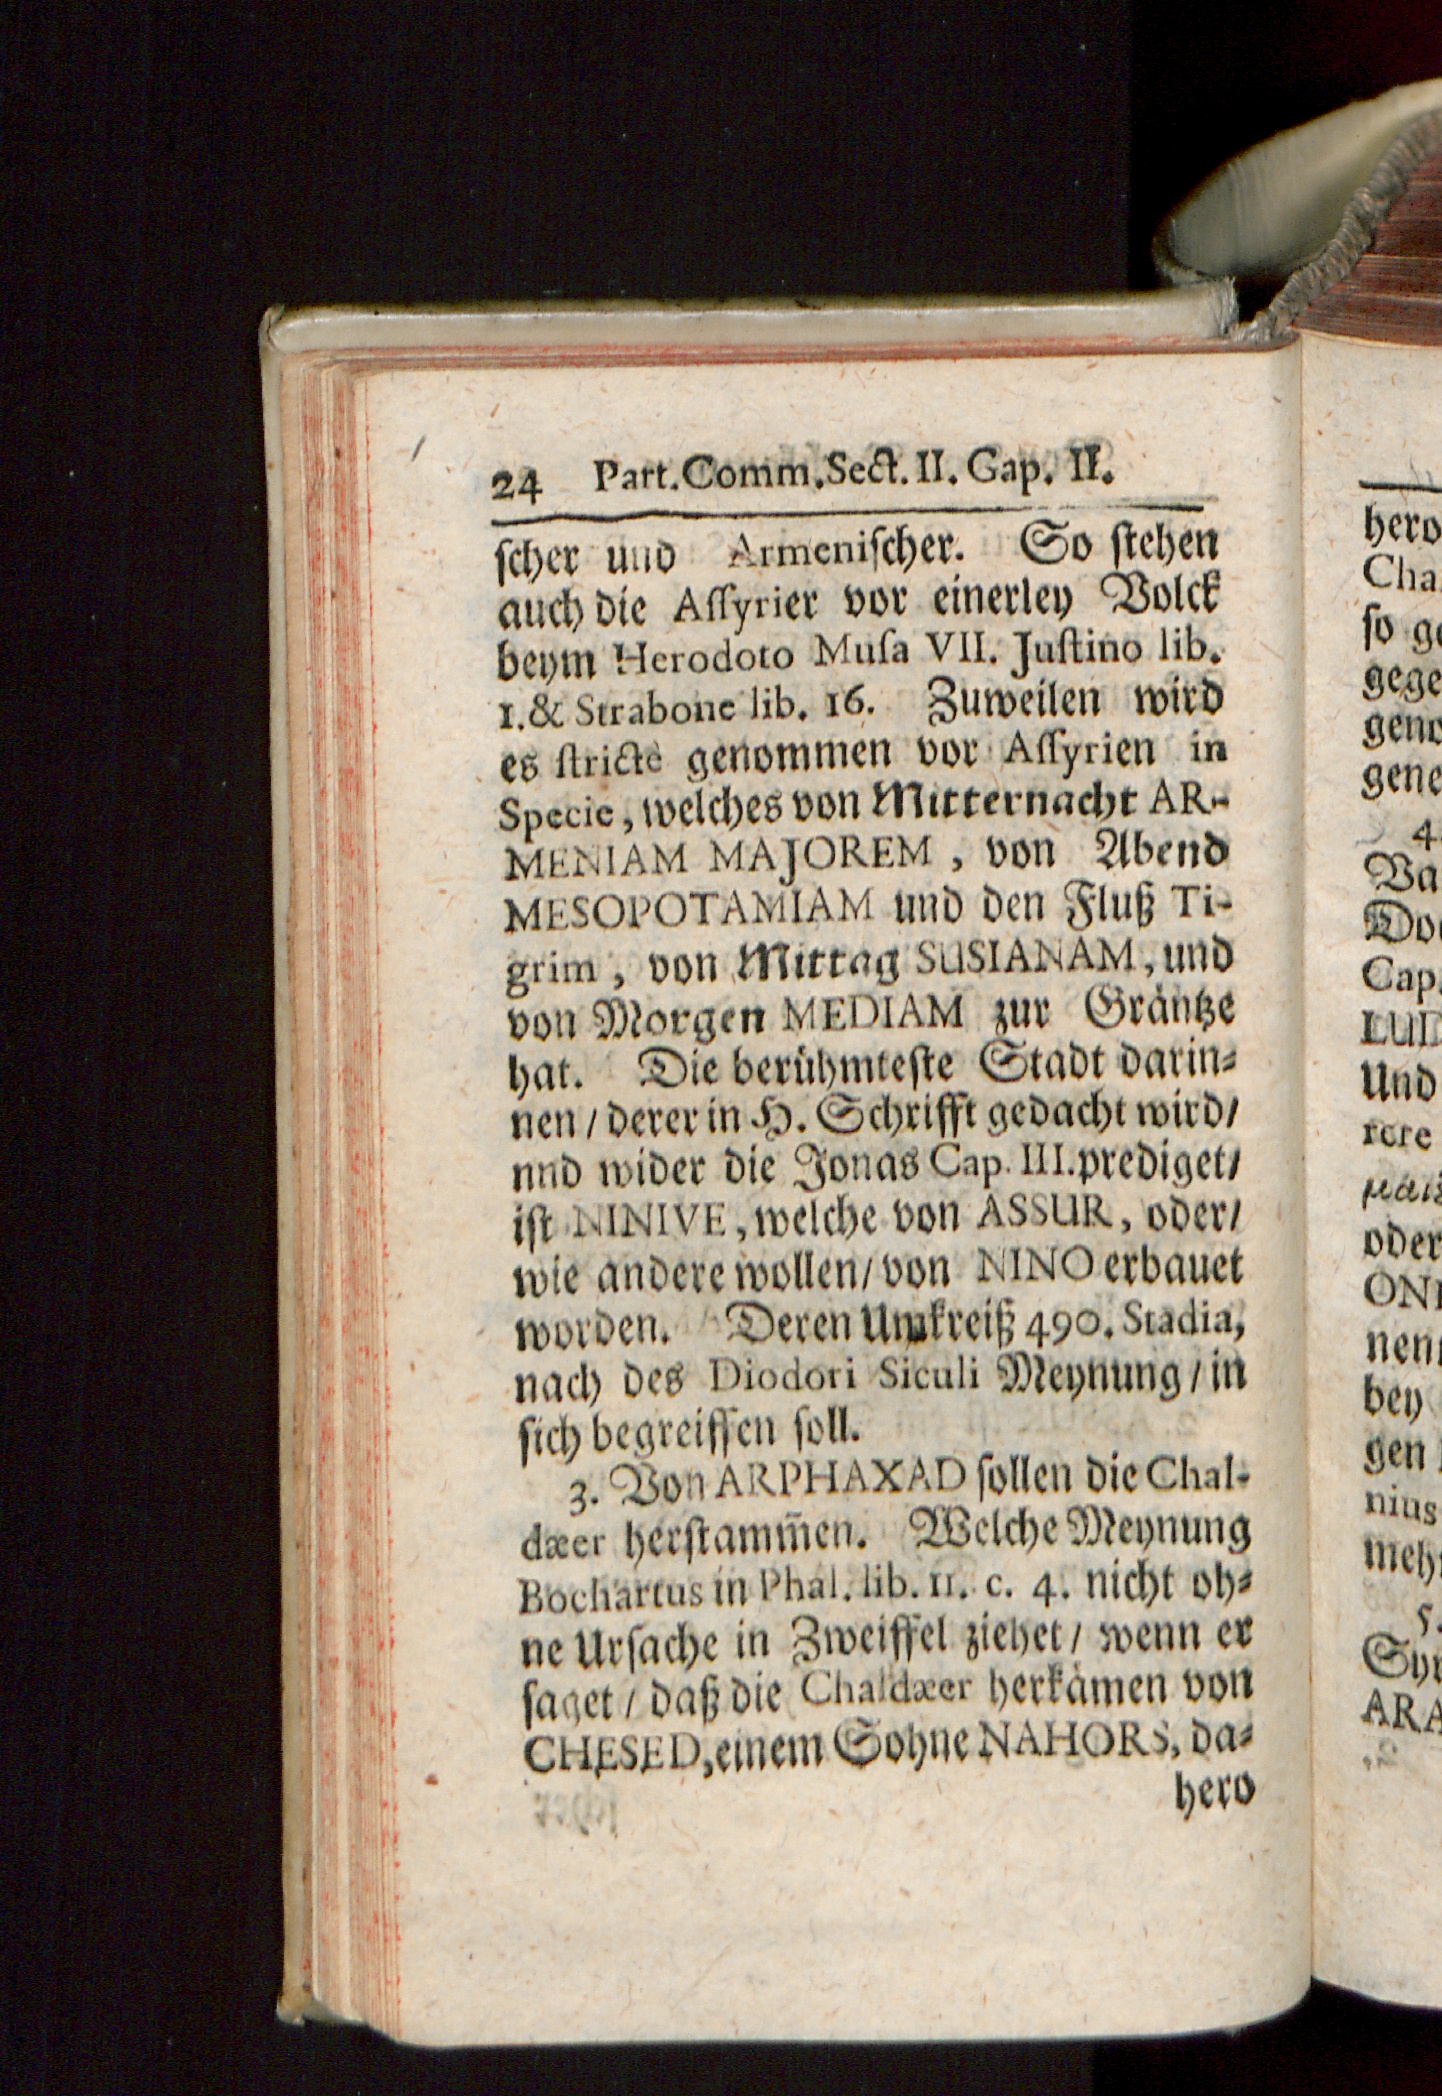 24 Part.Comm.Sect. II. Gap. II.
ſcher und Armeniſcher. So ſtehen
auch die Aſſyrier vor einerley Volck
beym Herodoto Muſa VII. Juſtino lib.
1.& Strabone lib. 16. Zuweilen wird
es ſtricte genommen vor Aſſyrien in
Specie, welches von Mitternacht AR-
MENIAM MAJOREM, von Abend
MESOPOTAMIAM und den Fluß Ti-
grim, von Mittag SUSIANAM, und
von Morgen MEDIAM zur Gräntze
hat. Die berühmteſte Stadt darin-
nen / derer in H. Schrifft gedacht wird/
nnd wider die Jonas Cap. III. prediget/
iſt NINIVE, welche von ASSUR, oder/
wie andere wollen/ von NINO erbauet
worden. Deren Umkreiß 490. Stadia,
nach des Diodori Siculi Meynung / in
ſich begreiffen ſoll.
3. Von ARPHAXAD ſollen die Chal-
dæer herſtam̃en. Welche Meynung
Bochartus in Phal. lib. 11. c. 4. nicht oh-
ne Urſache in Zweiffel ziehet / wenn er
ſaget / daß die Chaldæer herkämen von
CHESED, einem Sohne NAHORS, da-
hero
hero
Cha
ſo ge
gege
geno
gene
4.
Va
Do
Cap.
LUD
Und
rere
oder
ON
nen
bey
gen
nius
meh
5.
Syr
ARA